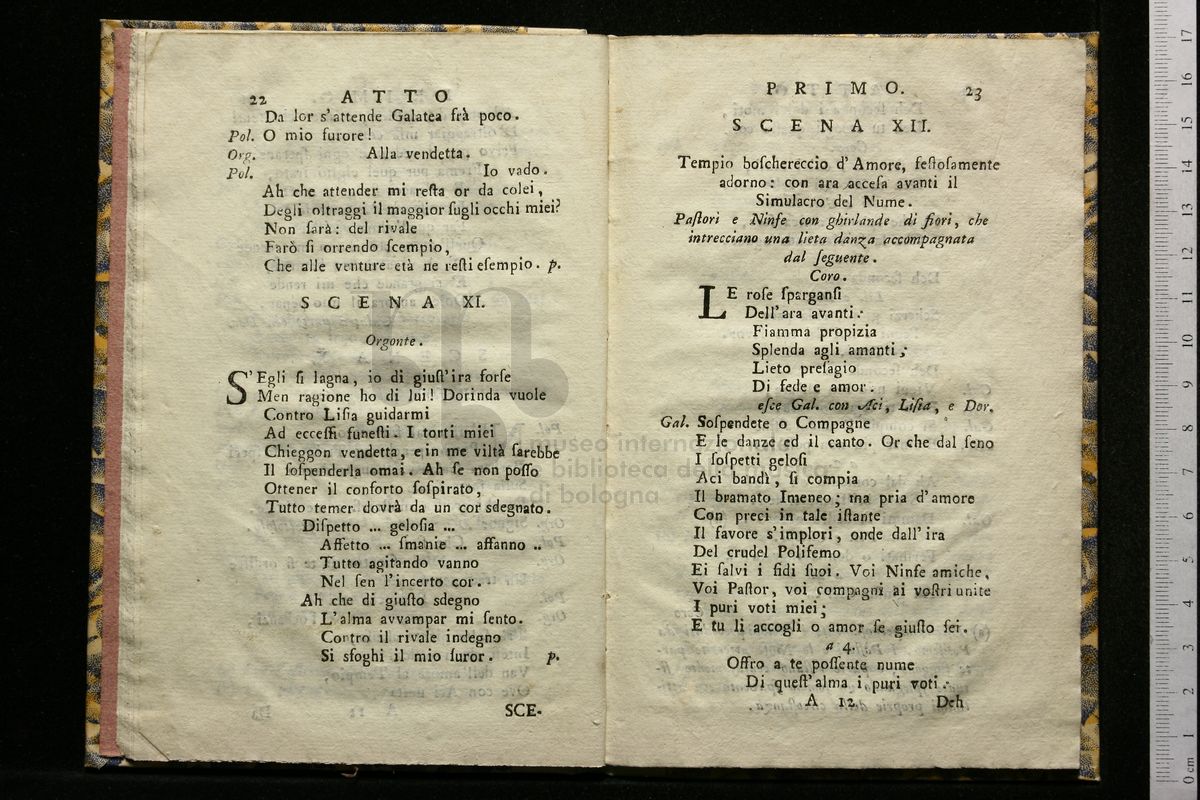 22 ATTO
Da lor s'attende Galatea frà poco.
Pol. O mio furore!
Org. Alla vendetta.
Pol. Io vado.
Ah che attender mi reſta or da colei,
Degli oltraggi il maggior ſugli occhi miei?
Non ſarà: del rivale
Farò ſi orrendo ſcempio,
Che alle venture età ne reſti eſempio. p.
SCENA XI.
Orgonte.
S'Egli ſi lagna, io di giuſt'ira forſe
Men ragione ho di lui! Dorinda vuole
Contro Liſia guidarmi
Ad ecceſſi funeſti. I torti miei
Chieggon vendetta, e in me viltà ſarebbe
Il ſoſpenderla omai. Ah ſe non poſſo
Ottener il conforto ſoſpirato,
Tutto temer dovrà da un cor sdegnato.
Diſpetto ... geloſia ...
Affetto ... ſmanie ... affanno ..
Tutto agitando vanno
Nel ſen l'incerto cor.
Ah che di giuſto sdegno
L'alma avvampar mi ſento.
Contro il rivale indegno
Si sfoghi il mio furor. p.
SCE-
PRIMO. 23
SCENA XII.
Tempio boſchereccio d'Amore, feſtoſamente
adorno: con ara acceſa avanti il
Simulacro del Nume.
Paſtori e Ninfe con ghirlande di fiori, che
intrecciano una lieta danza accompagnata
dal ſeguente.
Coro.
LE roſe ſparganſi
Dell'ara avanti:
Fiamma propizia
Splenda agli amanti;
Lieto preſagio
Di fede e amor.
eſce Gal. con Aci, Liſia, e Dor.
Gal. Soſpendete o Compagne
E le danze ed il canto. Or che dal ſeno
I ſoſpetti geloſi
Aci bandì, ſi compia
Il bramato Imeneo; ma pria d'amore
Con preci in tale iſtante
Il favore s'implori, onde dall'ira
Del crudel Polifemo
Ei ſalvi i fidi ſuoi. Voi Ninfe amiche,
Voi Paſtor, voi compagni ai voſtri unite
I puri voti miei;
E tu li accogli o amor ſe giuſto ſei.
a 4.
Offro a te poſſente nume
Di queſt'alma i puri voti:
A 12 Deh
museo internazionale
biblioteca della musica
di bologna